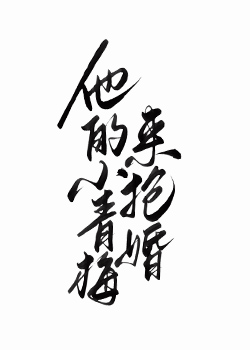 他的小青梅
来抢婚